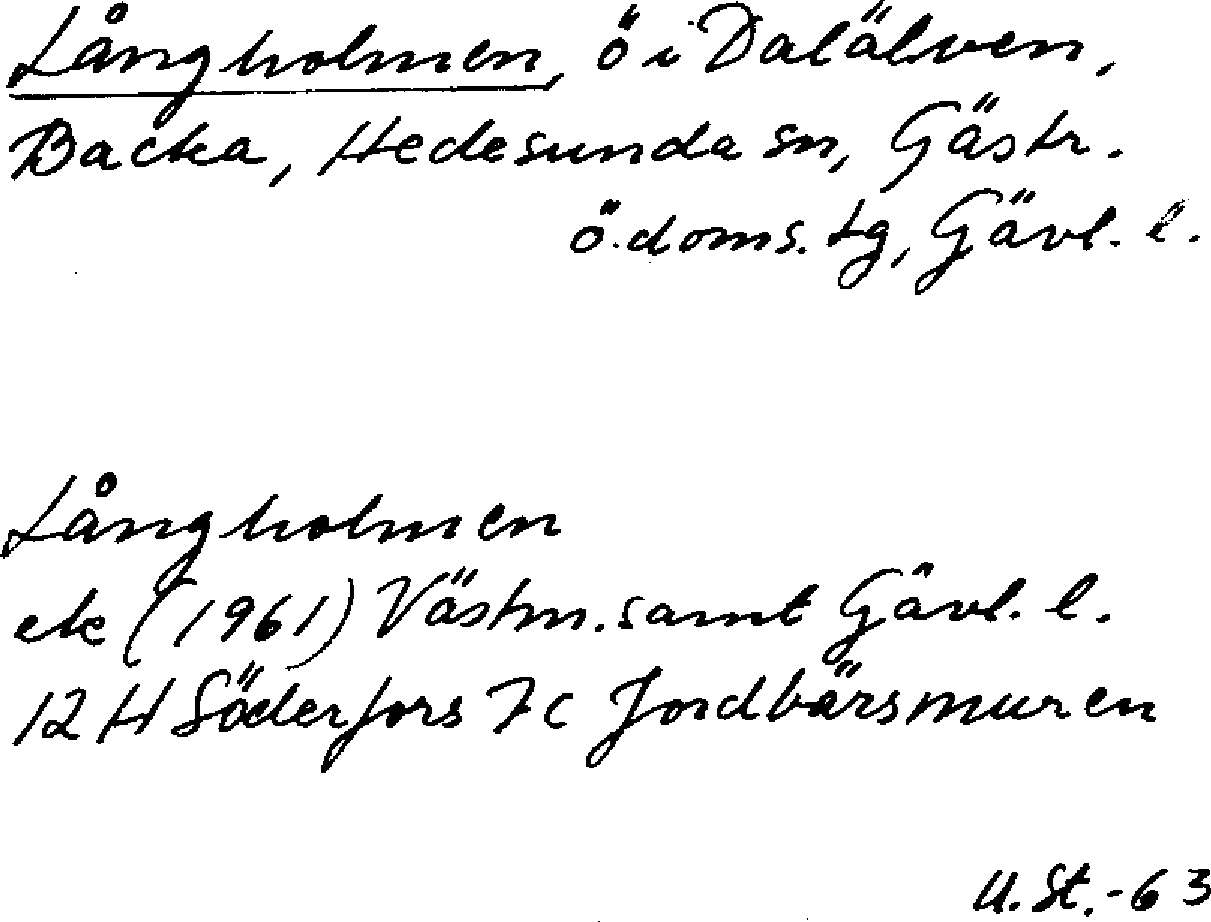 Långholmen, ö i Dalälven,
Backa, Hedesunda sn, Gästr.
ö. doms. tg, Gävl. l.
Långholmen
ek (1961) Västm. samt Gävl. l.
12 H Söderfors 7c Jordbärsmuren
U. St. -63